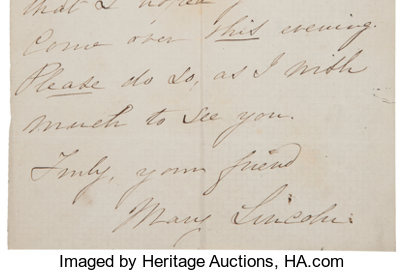 that I
Come over this evening.
Please do so, as I wish
much to see you.
Truly, your friend
Mary Lincoln.
Imaged by Heritage Auctions, HA.com